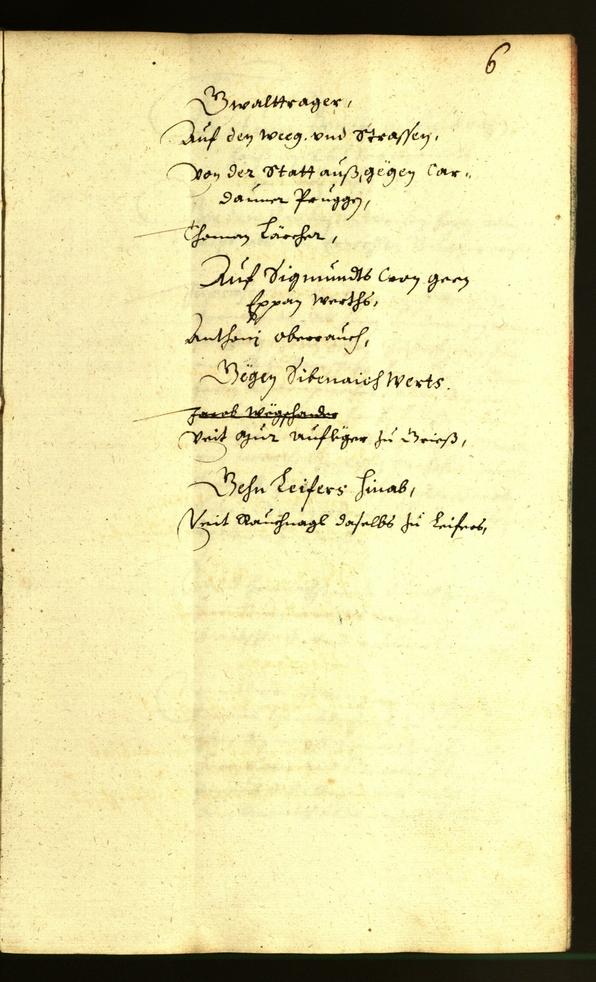 6
Gwalttrager,
Auf den Weeg. vnd Strassen,
Von der Statt auß, gegen Car-
dauner Pruggen,
Thoman Lärcher,
Auf Sigmundts Cron geen
Eppan Werths,
Anthonj Oberrauch,
Gegen Sibenaich Werts.
Jacob
Veit aufliger zu Grieß,
Gehn Leifers hinab,
Veit Rauchnagl daselbs zu Leifers,